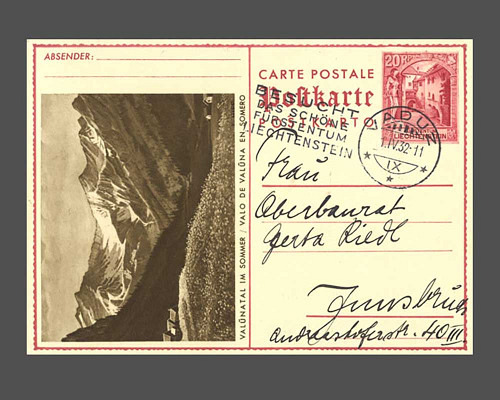 ABSENDER:
CARTE POSTALE
Postkarte
POSTKARTO
20 RP
LIECHTENSTEIN
BESUCHT
DAS SCHÖNE
FÜRSTENTUM
LIECHTENSTEIN
VADUZ
IV.32-11
IX
VALÜNATAL IM SOMMER / VALO DE VALÜNA EN SOMERO
Frau
Oberbaurat
Gerta Riedl
Innsbruck
Andreashoferstr. 40 III.